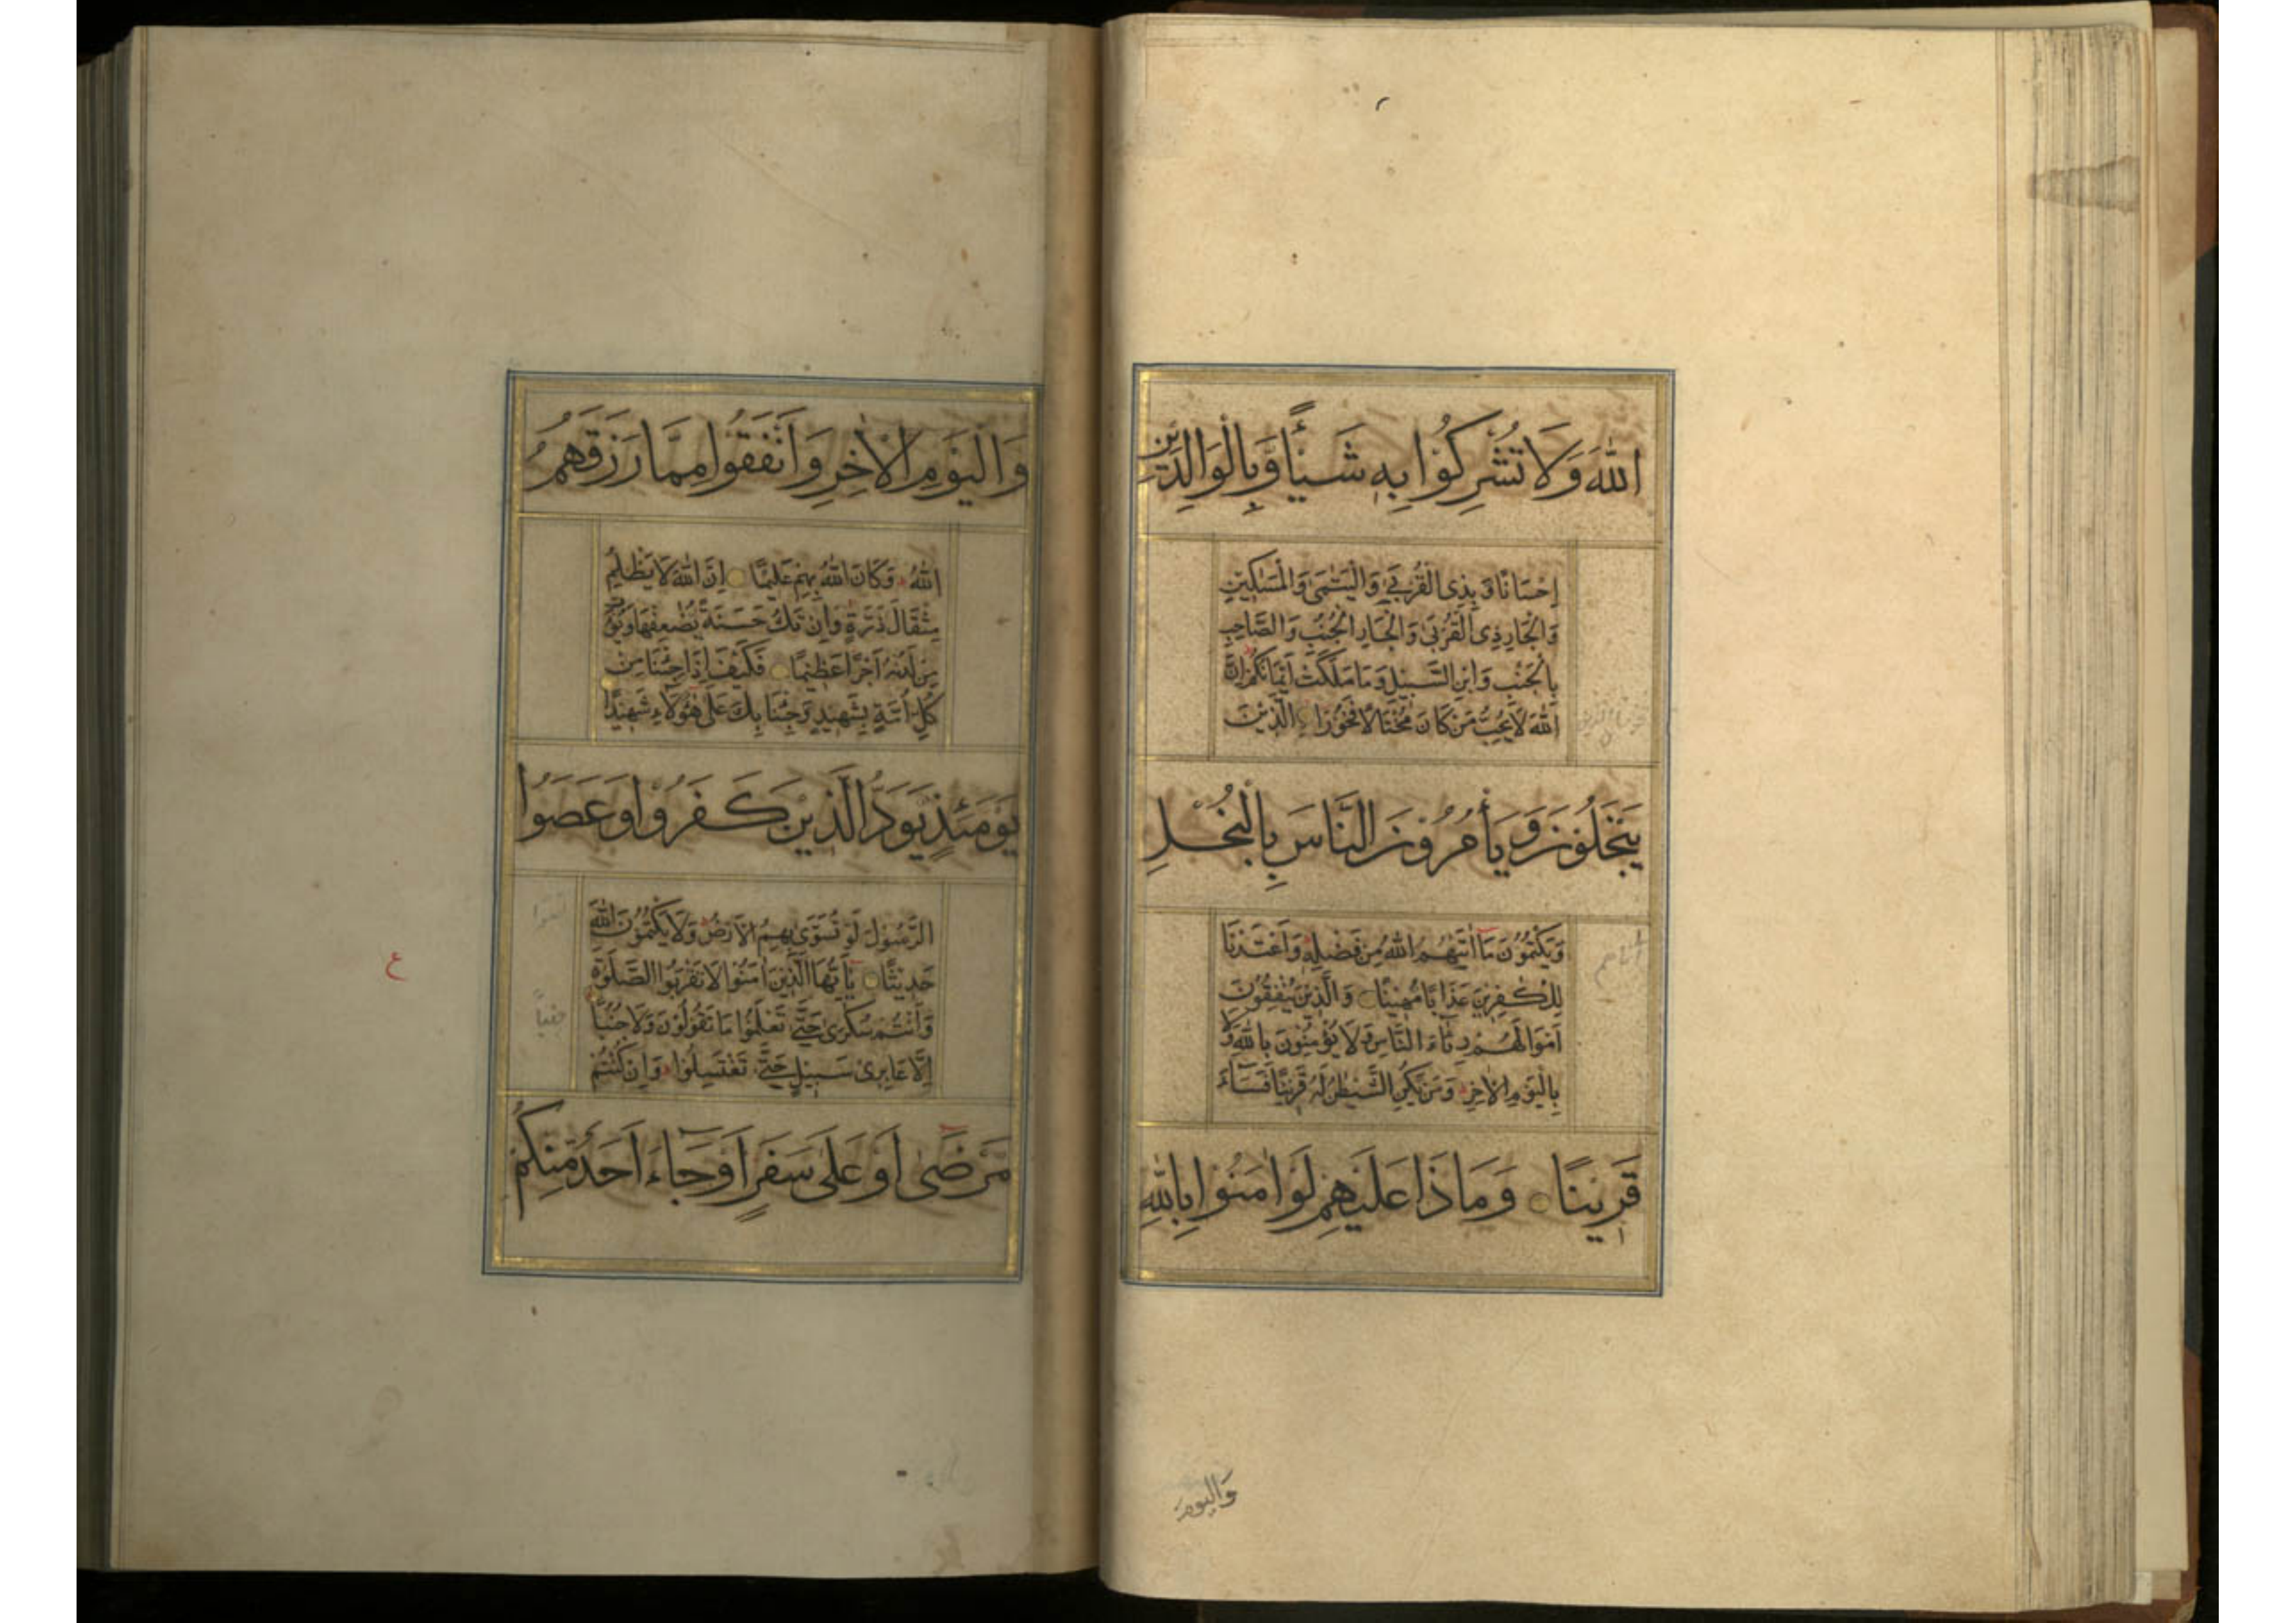 اللّٰهَ وَلَا تُشْرِكُوْا بِهٖ شَيْـًٔا وَّبِالْوَالِدَيْنِ
اِحْسَانًا وَّبِذِى الْقُرْبٰى وَالْيَتٰمٰى وَالْمَسٰكِيْنِ
وَالْجَارِ ذِى الْقُرْبٰى وَالْجَارِ الْجُنُبِ وَالصَّاحِبِ
بِالْجَنْبِ وَابْنِ السَّبِيْلِ وَمَا مَلَكَتْ اَيْمَانُكُمْ اِنَّ
اللّٰهَ لَا يُحِبُّ مَنْ كَانَ مُخْتَالًا فَخُوْرًا الَّذِيْنَ
يَبْخَلُوْنَ وَيَأْمُرُوْنَ النَّاسَ بِالْبُخْلِ
وَيَكْتُمُوْنَ مَآ اٰتٰىهُمُ اللّٰهُ مِنْ فَضْلِهٖ وَاَعْتَدْنَا
لِلْكٰفِرِيْنَ عَذَابًا مُّهِيْنًا وَالَّذِيْنَ يُنْفِقُوْنَ
اَمْوَالَهُمْ رِئَآءَ النَّاسِ وَلَا يُؤْمِنُوْنَ بِاللّٰهِ وَلَا
بِالْيَوْمِ الْاٰخِرِ وَمَنْ يَّكُنِ الشَّيْطٰنُ لَهٗ قَرِيْنًا فَسَآءَ
قَرِيْنًا وَمَاذَا عَلَيْهِمْ لَوْ اٰمَنُوْا بِاللّٰهِ
وَالْيَوْمِ
وَالْيَوْمِ الْاٰخِرِ وَاَنْفَقُوْا مِمَّا رَزَقَهُمُ
اللّٰهُ وَكَانَ اللّٰهُ بِهِمْ عَلِيْمًا اِنَّ اللّٰهَ لَا يَظْلِمُ
مِثْقَالَ ذَرَّةٍ وَاِنْ تَكُ حَسَنَةً يُّضٰعِفْهَا وَيُؤْتِ
مِنْ لَّدُنْهُ اَجْرًا عَظِيْمًا فَكَيْفَ اِذَا جِئْنَا مِنْ
كُلِّ اُمَّةٍ بِشَهِيْدٍ وَّجِئْنَا بِكَ عَلٰى هٰٓؤُلَاءِ شَهِيْدًا
يَوْمَئِذٍ يَّوَدُّ الَّذِيْنَ كَفَرُوْا وَعَصَوُا
الرَّسُوْلَ لَوْ تُسَوّٰى بِهِمُ الْاَرْضُ وَلَا يَكْتُمُوْنَ اللّٰهَ
حَدِيْثًا يٰٓاَيُّهَا الَّذِيْنَ اٰمَنُوْا لَا تَقْرَبُوا الصَّلٰوةَ
وَاَنْتُمْ سُكٰرٰى حَتّٰى تَعْلَمُوْا مَا تَقُوْلُوْنَ وَلَا جُنُبًا
اِلَّا عَابِرِىْ سَبِيْلٍ حَتّٰى تَغْتَسِلُوْا وَاِنْ كُنْتُمْ
مَّرْضٰٓى اَوْ عَلٰى سَفَرٍ اَوْ جَآءَ اَحَدٌ مِّنْكُمْ
ع